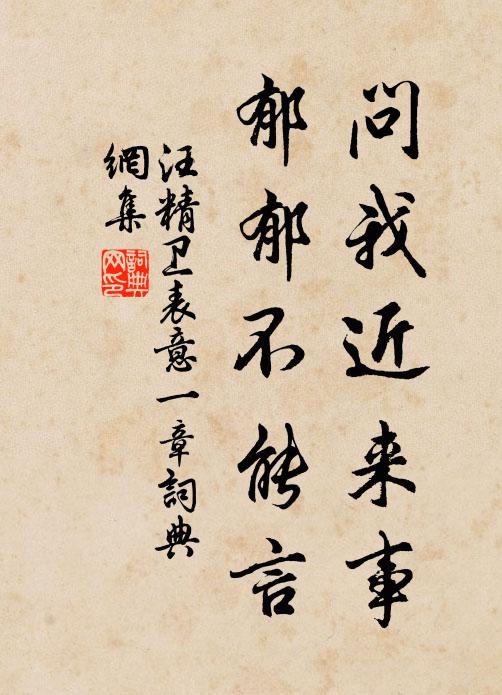 问我近来事
郁郁不能言
汪精卫表意一章詞典
網集
詞典
网印